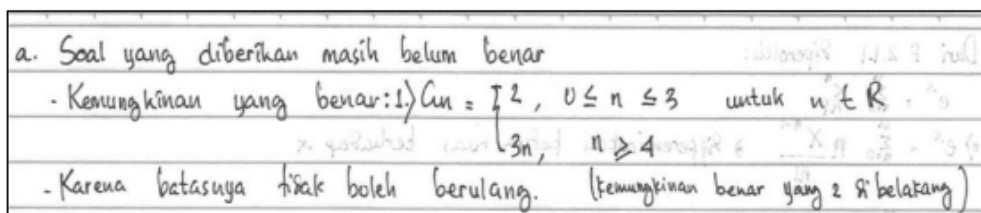 a. Soal yang diberikan masih belum benar
- Kemungkinan yang benar: 1.) an = { 2, 0 ≤ n ≤ 3 untuk n ∈ R
3n, n ≥ 4
- Karena batasnya tidak boleh berulang. (kemungkinan benar yang 2 di belakang)